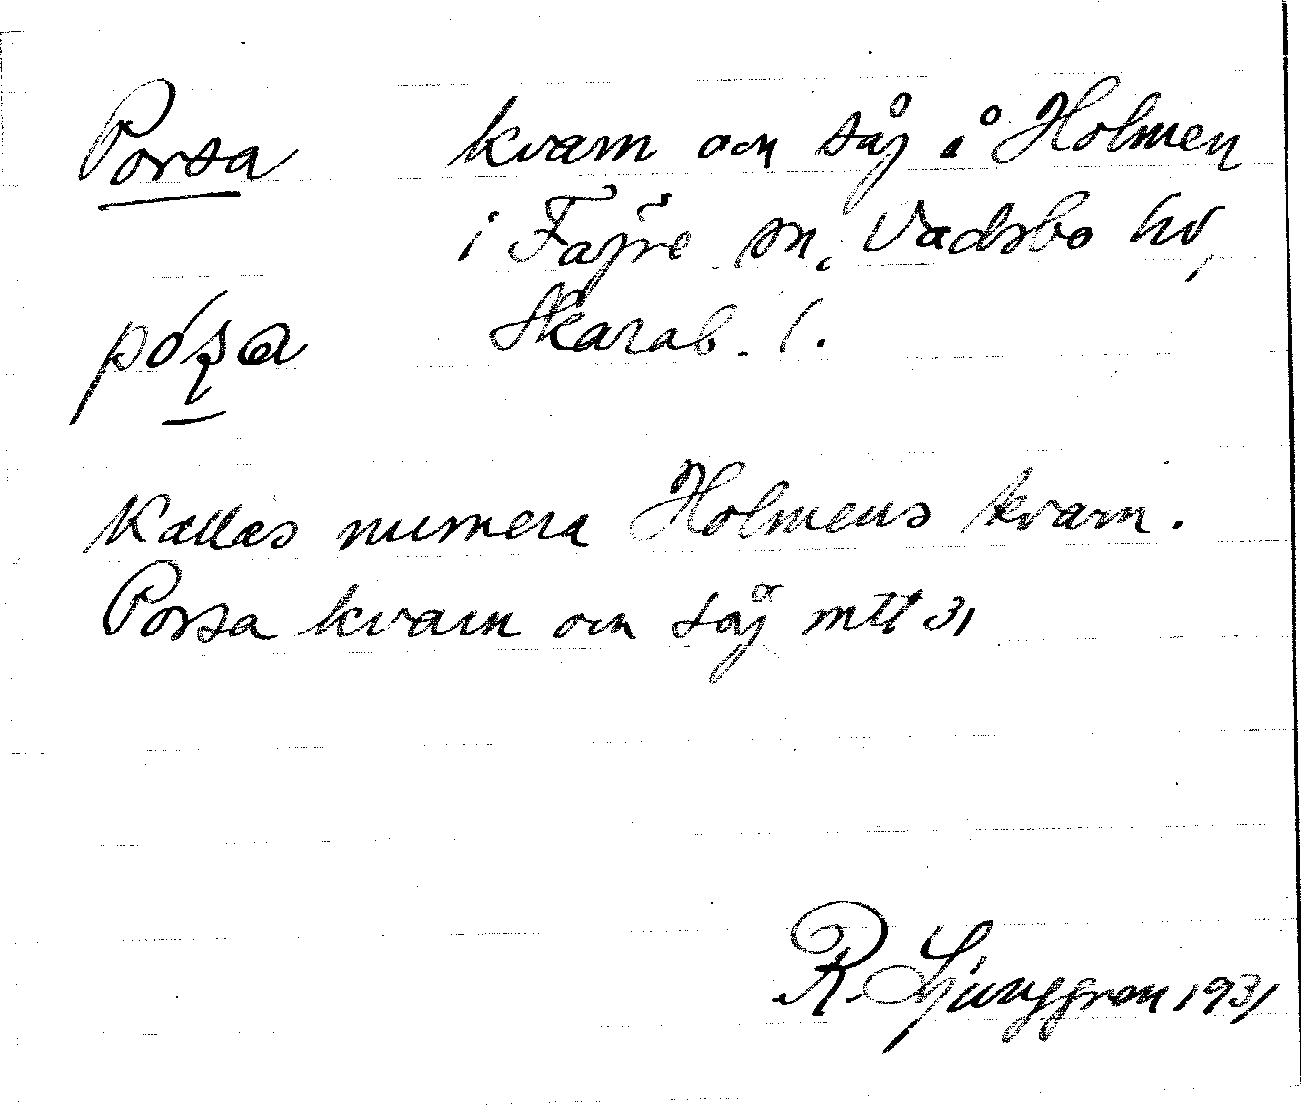 Porsa kvarn och såg å Holmen
i Fägre sn, Vadsbo hd,
Skarab. l.
Kallas numera Holmens kvarn.
Porsa kvarn och såg mtl 31
R. Ljunggren 1931